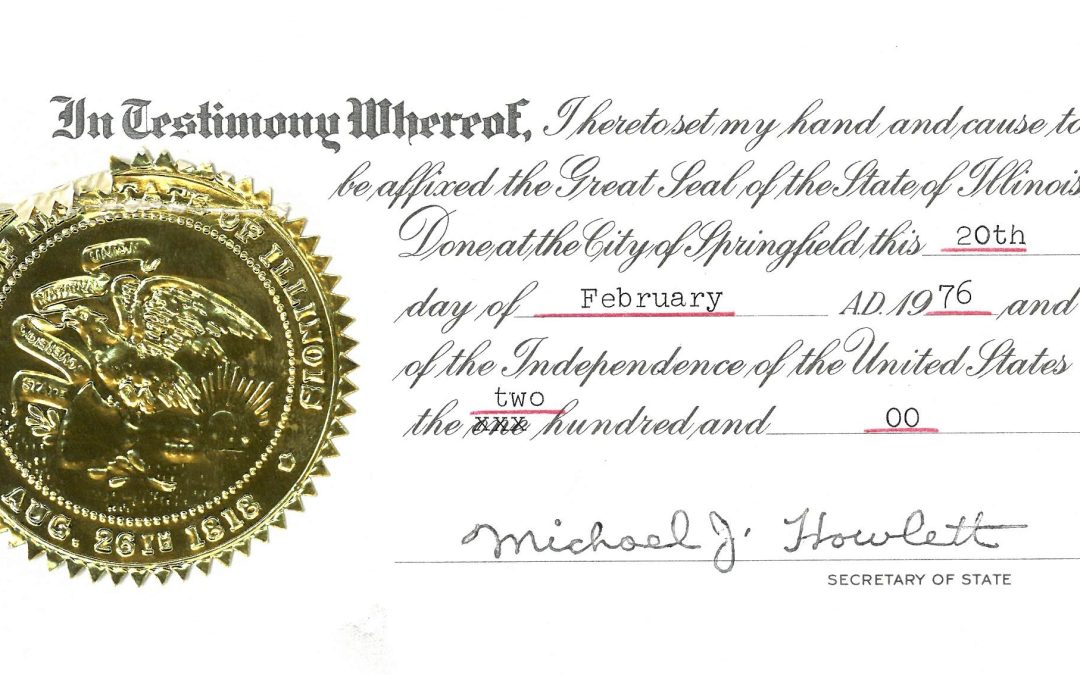 In Testimony Whereof, I hereto set my hand and cause to
be affixed the Great Seal of the State of Illinois
Done at the City of Springfield this 20th
day of February A.D. 1976 and
of the Independence of the United States
two
the xxx hundred and 00
Michael J. Howlett
SECRETARY OF STATE
OF ILLINOIS
AUG. 26TH 1818
UNION
NATIONAL
STATE